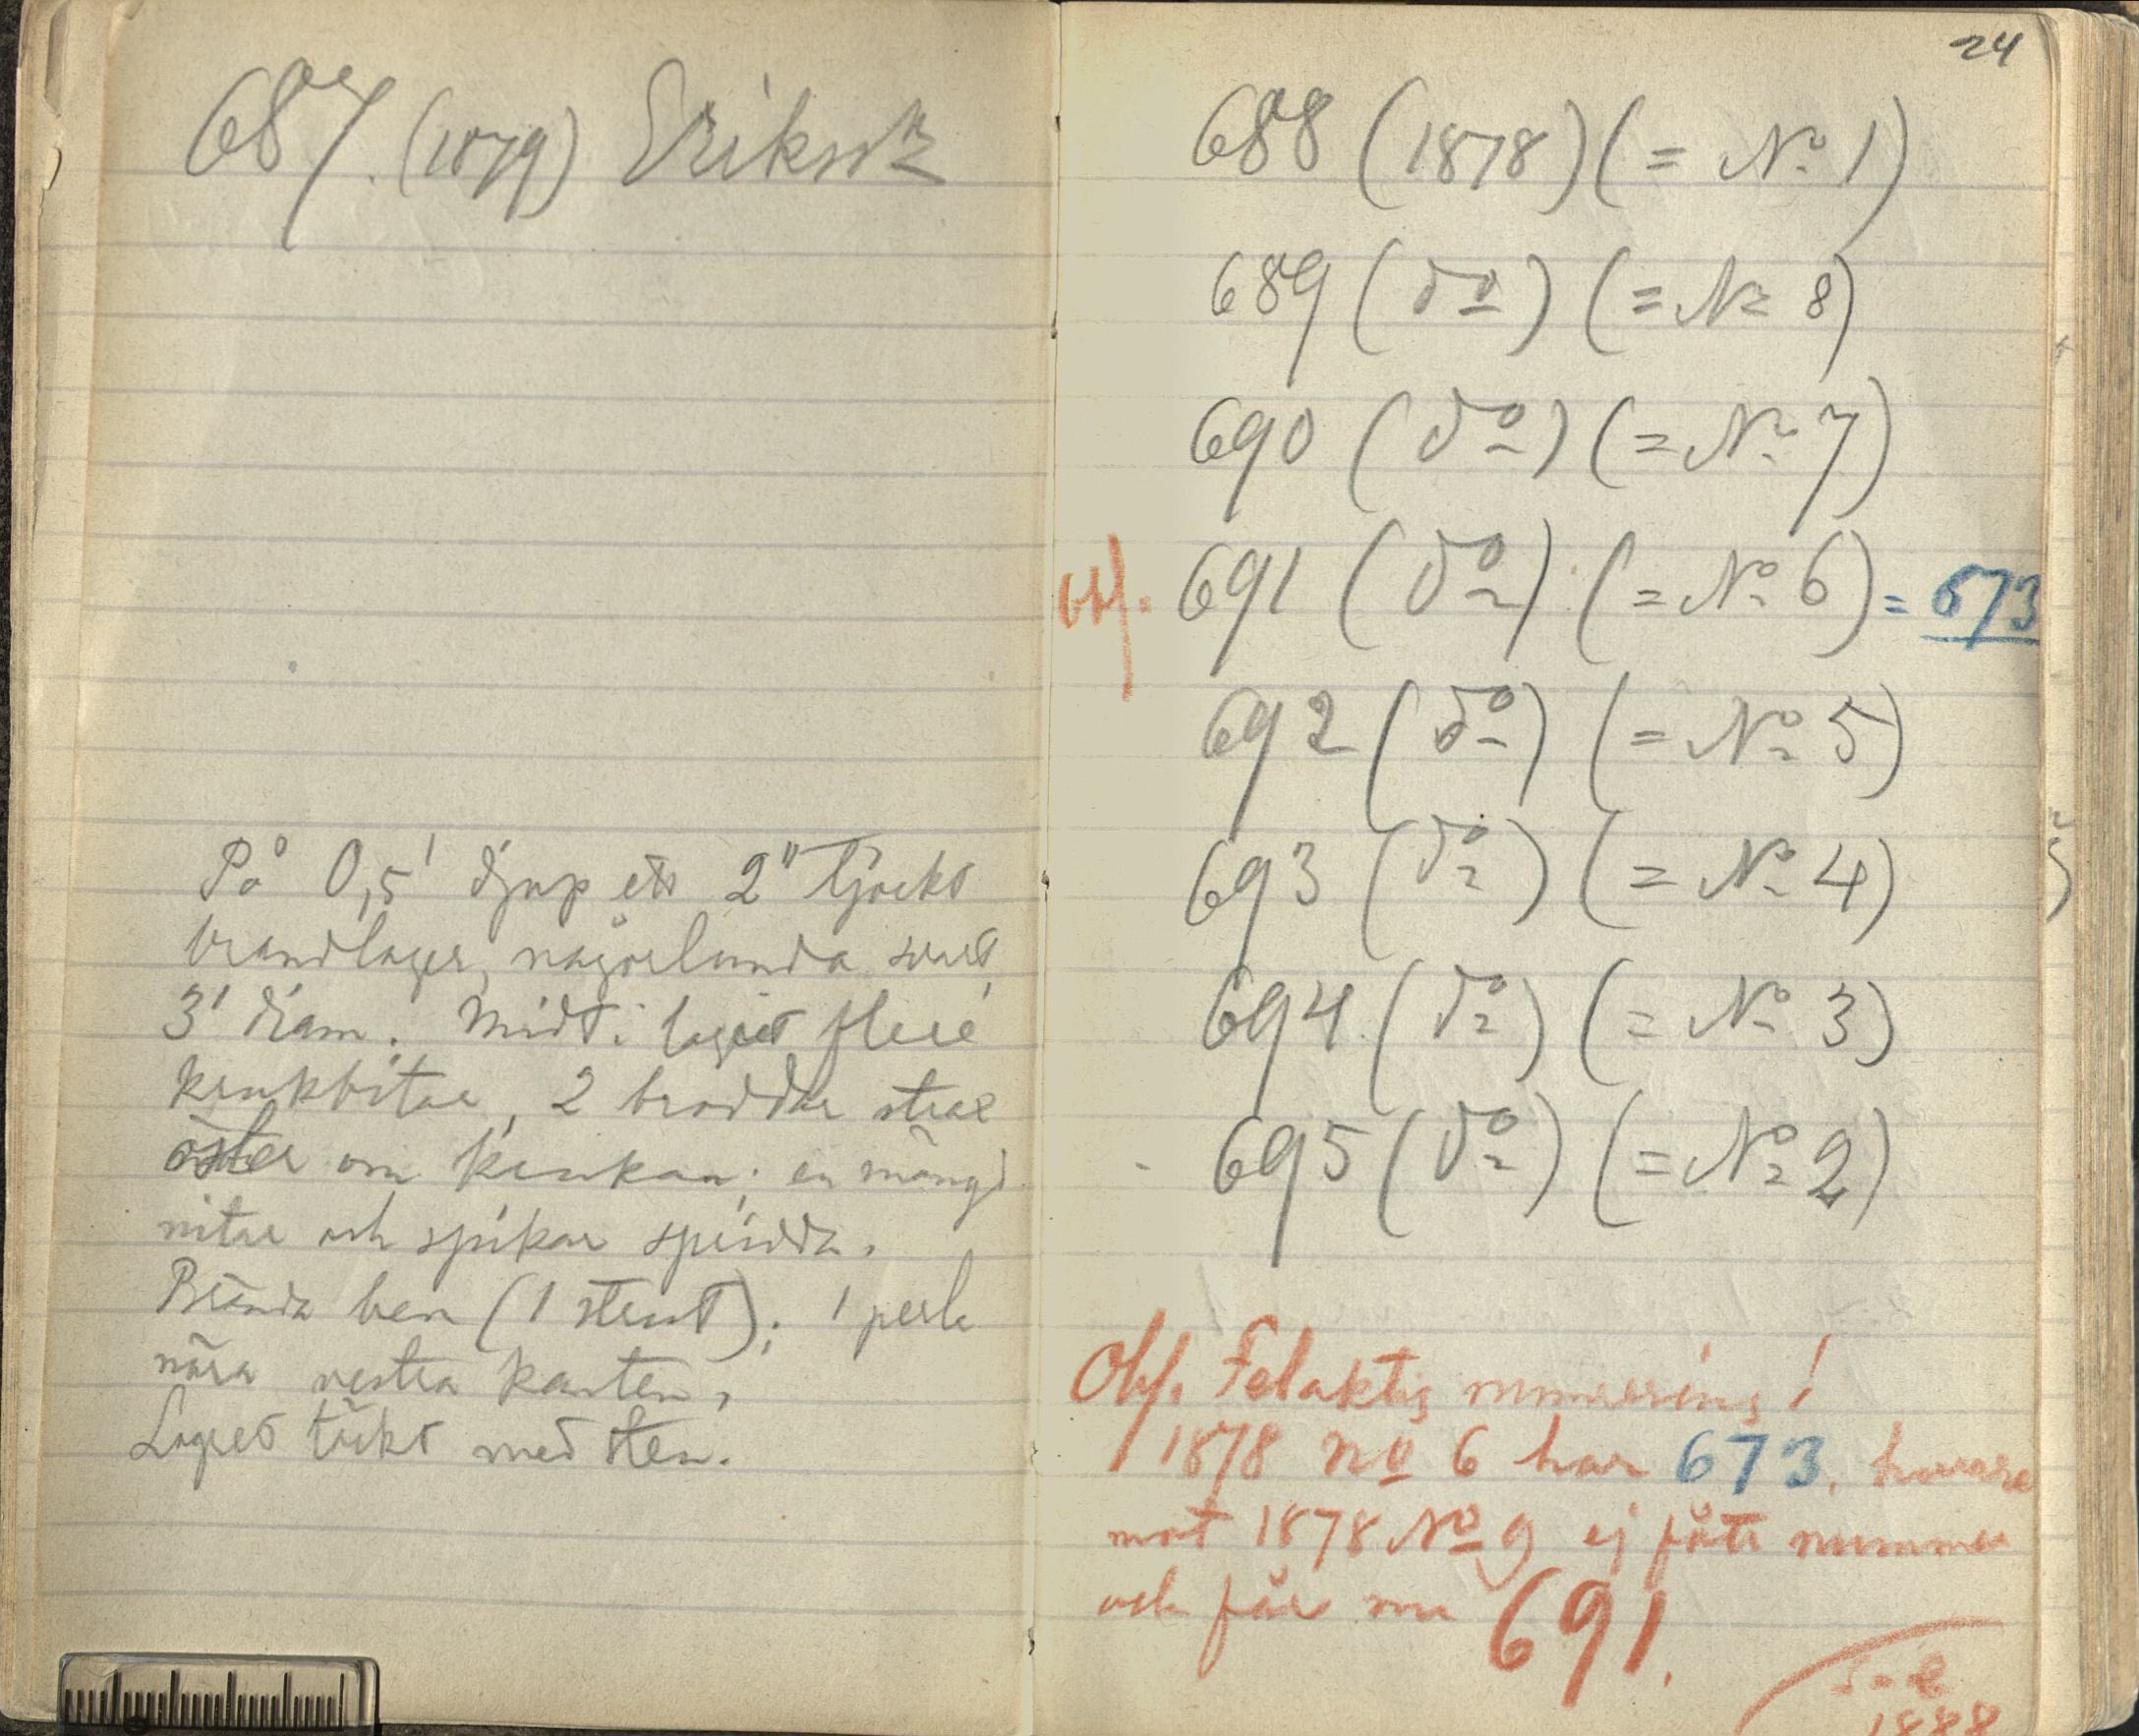 687. (1879) Eriksson
På 0,5' djup ett 2" tjockt
brandlager, någorlunda svart,
3' diam. Midt i lagret flere
krukbitar, 2 broddar strax
öster om krukan; en mängd
nitar och spikar spridda.
Brända ben (1 stort); 1 perla
nära vestra kanten,
Lagret täckt med sten.
24
688 (1878) (= No 1)
689 (do) (= No 8)
690 (do) (= No 7)
Obs. 691 (do) (= No 6) = 673
692 (do) (= No 5)
693 (do) (= No 4)
694 (do) (= No 3)
695 (do) (= No 2)
Obs. Felaktig numrering!
1878 no 6 har 673, hvare
mot 1878 No 9 ej fått nummer
och får nu 691.
1888